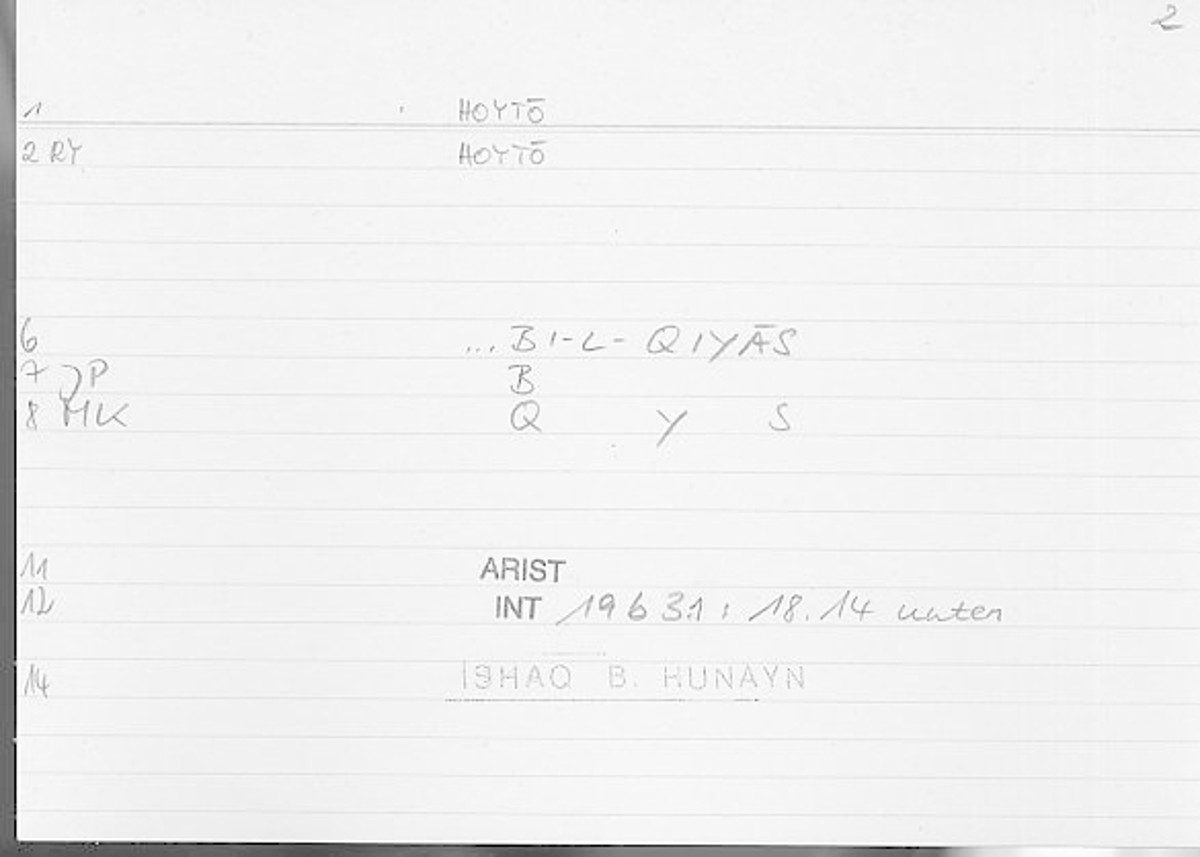 2
1 HOYTŌ
2 RY HOYTŌ
6 ... B I-L- QIYĀS
7 P B
8 MK Q Y S
11 ARIST
12 INT 19 b 31 : 18.14 unten
14 ISHAQ B. HUNAYN